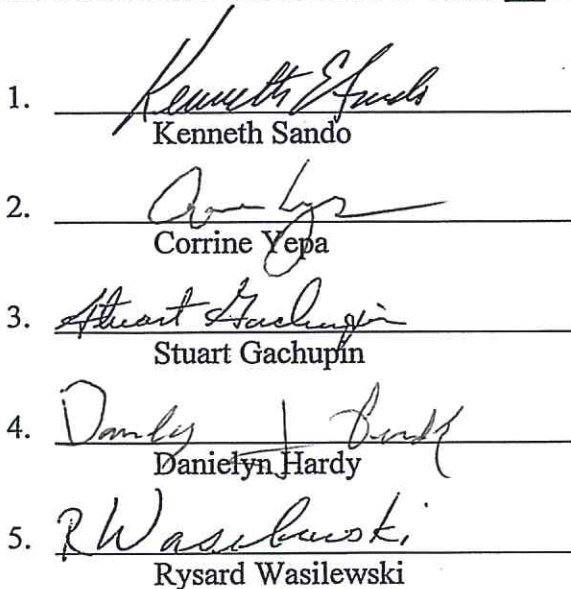 1. Kenneth E Sando
Kenneth Sando
2.
Corrine Yepa
3. Stuart Gachupin
Stuart Gachupin
4.
Danielyn Hardy
5. R Wasilewski
Rysard Wasilewski